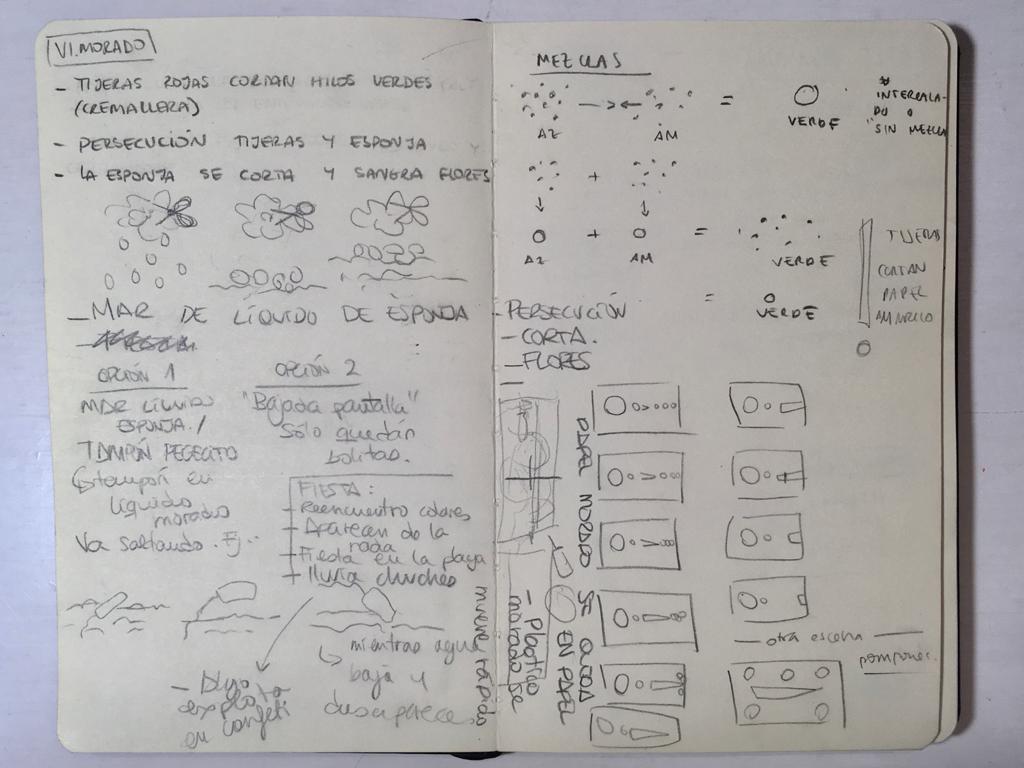 VI. MORADO
- TIJERAS ROJAS CORTAN HILOS VERDES
(CREMALLERA)
- PERSECUCIÓN TIJERAS Y ESPONJA
- LA ESPONJA SE CORTA Y SANGRA FLORES
- MAR DE LÍQUIDO DE ESPONJA
OPCIÓN 1
MAR LÍQUIDO
ESPONJA. /
TAMPÓN PEGECITO
Estampón en
líquido
morado
Va saltando. Ej..
OPCIÓN 2
"Bajada pantalla"
Sólo quedan
bolitas.
FIESTA:
- Reencuentro colores
- Aparecen de la
nada
- Fiesta en la playa
+ lluvia chuches
mientras agua
baja y
desaparece
- Dejo
explota
en confeti
MEZCLAS
AZ
AM
=
VERDE
*
INTERCALA-
DO O
"SIN MEZCLA
+
AZ
+
AM
=
VERDE
=
VERDE
TIJERAS
CORTAN
PAPEL
AMARILLO
- PERSECUCIÓN
- CORTA.
- FLORES
PAPEL MORDIDO SE QUEDA
EN PAPEL
- Plástico
morado se
mueve rápido
— otra escena —
pompones.